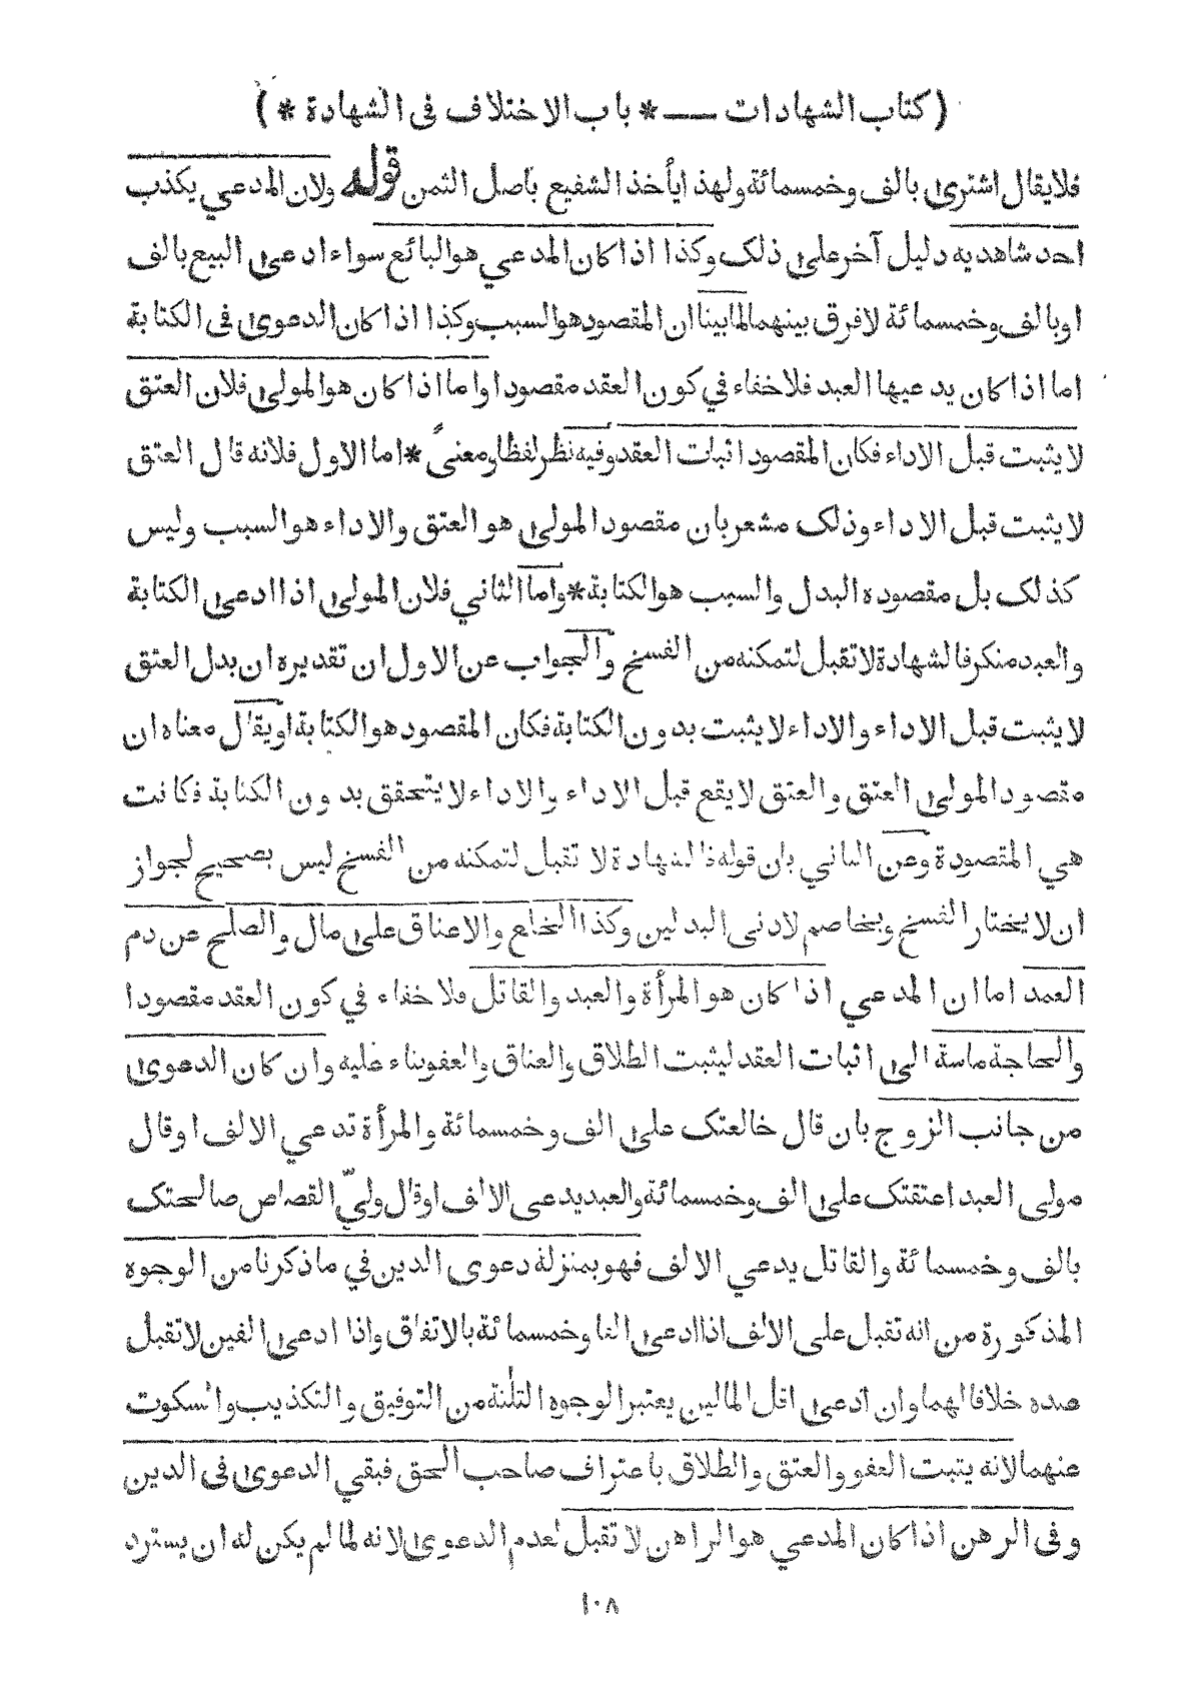 (كتاب الشهادات — * باب الاختلاف فى الشهادة *)
فلايقال اشترى بالف وخمسمائة ولهذا يأخذ الشفيع باصل الثمن قوله ولان المدعي يكذب
احد شاهديه دليل آخر على ذلك وكذا اذا كان المدعي هو البائع سواء ادعى البيع بالف
او بالف وخمسمائة لافرق بينهما لما بينا ان المقصود هو السبب وكذا اذا كان الدعوى فى الكتابة
اما اذا كان يدعيها العبد فلاخفاء في كون العقد مقصودا واما اذا كان هو المولى فلان العتق
لايثبت قبل الاداء فكان المقصود اثبات العقد وفيه نظر لفظا ومعنىً * اما الاول فلانه قال العتق
لايثبت قبل الاداء وذلك مشعر بان مقصود المولى هو العتق والاداء هو السبب وليس
كذلك بل مقصوده البدل والسبب هو الكتابة * واما الثاني فلان المولى اذا ادعى الكتابة
والعبد منكر فالشهادة لاتقبل لتمكنه من الفسخ والجواب عن الاول ان تقديره ان بدل العتق
لايثبت قبل الاداء والاداء لايثبت بدون الكتابة فكان المقصود هو الكتابة او يقال معناه ان
مقصود المولى العتق والعتق لايقع قبل الاداء والاداء لايتحقق بدون الكتابة فكانت
هي المقصودة وعن الثاني بان قوله فالشهادة لا تقبل لتمكنه من الفسخ ليس بصحيح لجواز
ان لايختار الفسخ ويخاصم لادنى البدلين وكذا الخلع والاعتاق على مال والصلح عن دم
العمد اما ان المدعي اذا كان هو المرأة والعبد والقاتل فلاخفاء في كون العقد مقصودا
والحاجة ماسة الى اثبات العقد ليثبت الطلاق والعتاق والعفو بناء عليه وان كان الدعوى
من جانب الزوج بان قال خالعتك على الف وخمسمائة والمرأة تدعي الالف او قال
مولى العبد اعتقتك على الف وخمسمائة والعبد يدعى الالف او قال وليّ القصاص صالحتك
بالف وخمسمائة والقاتل يدعي الالف فهو بمنزلة دعوى الدين في ماذكرنا من الوجوه
المذكورة من انه تقبل على الالف اذا ادعى الفا وخمسمائة بالاتفاق واذا ادعى الفين لاتقبل
عنده خلافا لهما وان ادعى اقل المالين يعتبر الوجوه الثلثة من التوفيق والتكذيب والسكوت
عنهما لانه يثبت العفو والعتق والطلاق باعتراف صاحب الحق فبقي الدعوى فى الدين
وفى الرهن اذا كان المدعي هو الراهن لاتقبل لعدم الدعوى لانه لما لم يكن له ان يسترد
١٠٨